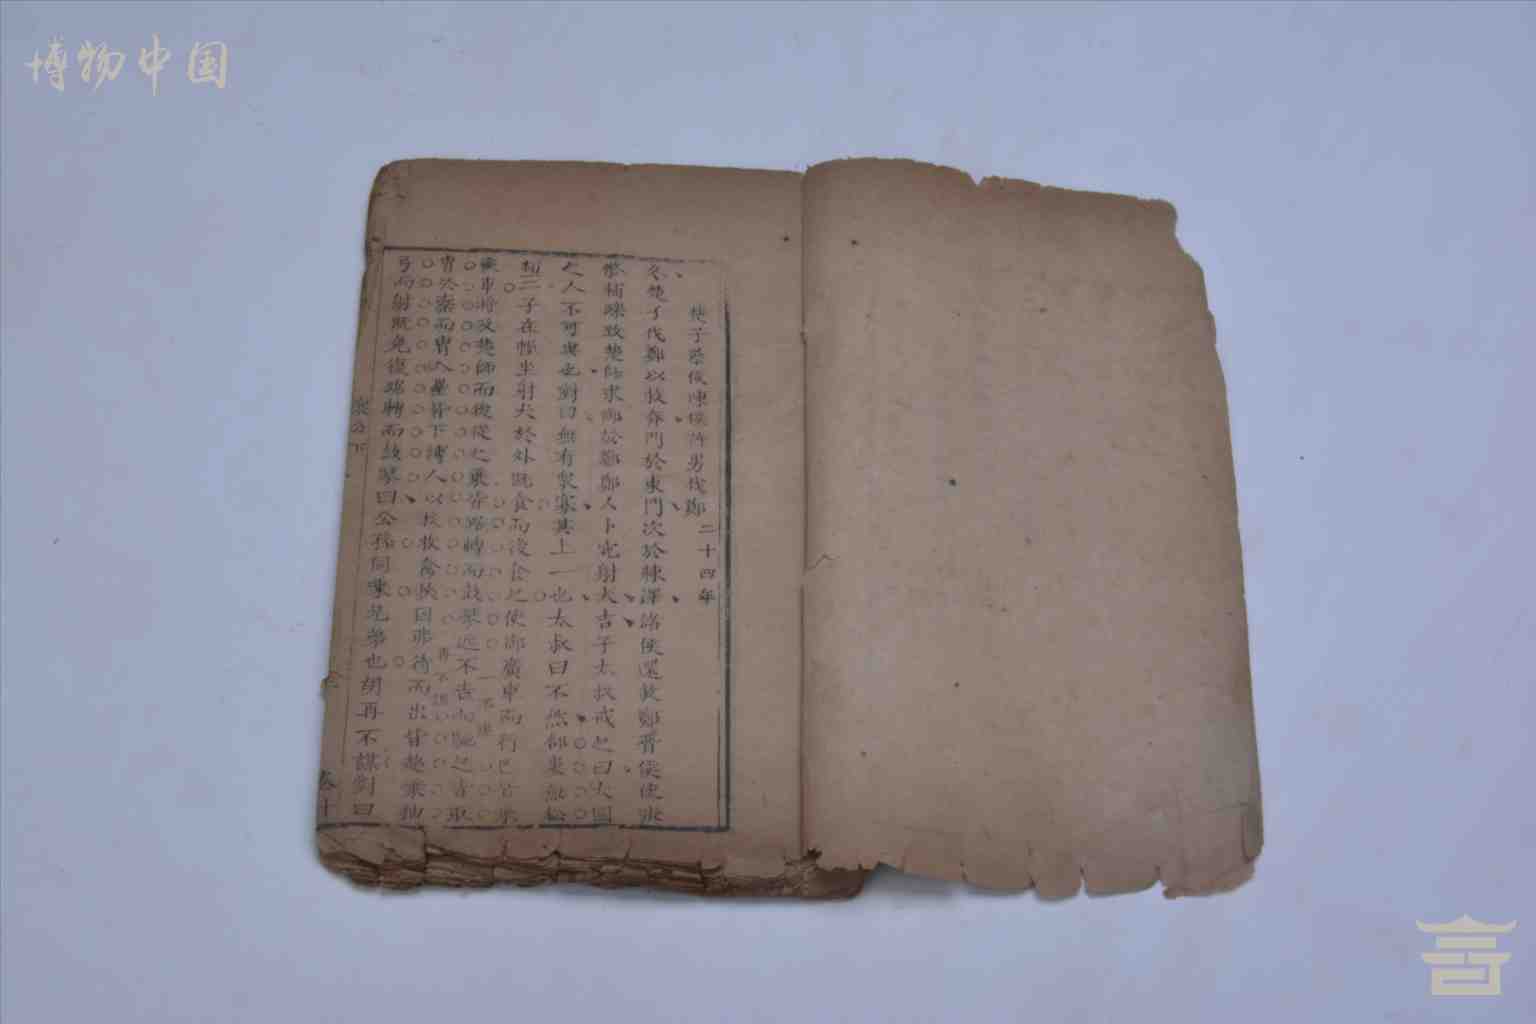 博物中国
楚子蔡侯陳侯許男伐鄭二十四年
冬楚子伐鄭以救齊門於東門次於棘澤諸侯還救鄭晉侯使張
骼輔躒致楚師求御於鄭鄭人卜宛射犬吉子太叔戒之曰大國
之人不可與也對曰無有衆寡其上一也太叔曰不然部婁無松
柏二子在幄坐射犬於外既食而後食之使御廣車而行已皆乘
乘車將及楚師而後從之乘皆踞轉而鼓琴近不告而馳之皆取
一不謀
胄於櫜而胄入壘皆下搏人以投收禽挾囚弗待而出皆超乘抽
再不謀
弓而射既免復踞轉而鼓琴曰公孫同乘兄弟也胡再不謀對曰
襄公下
卷十